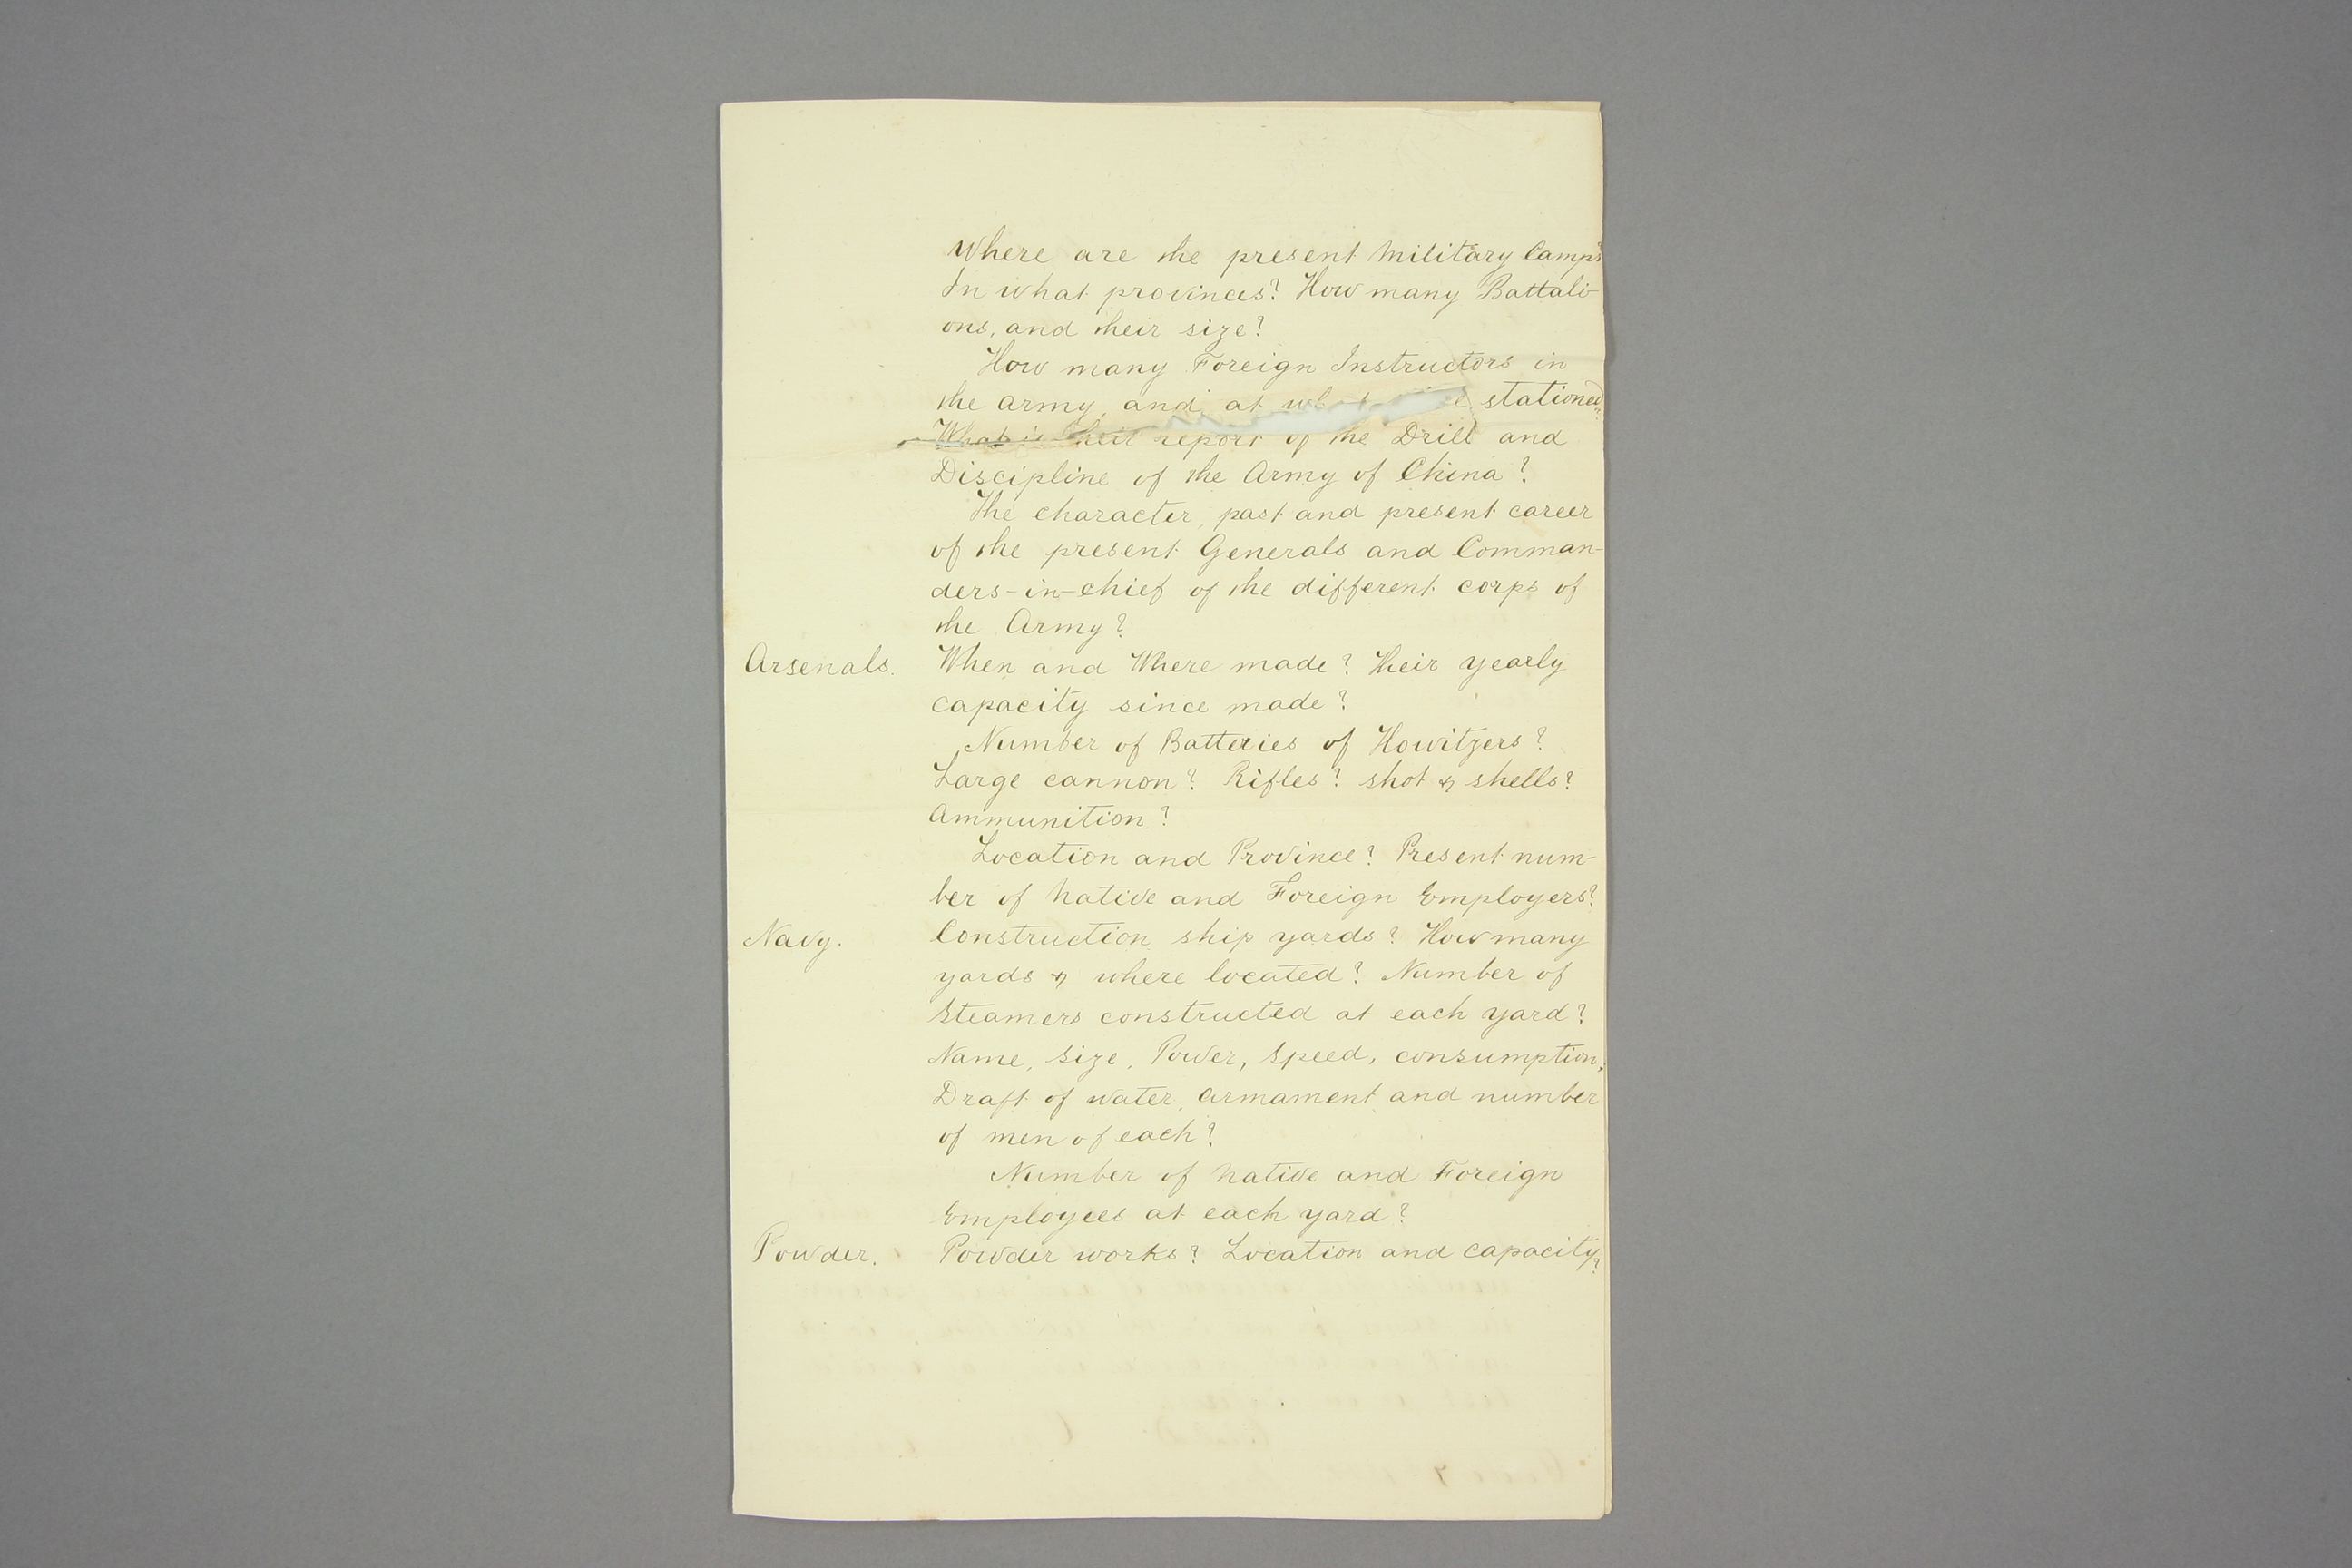 Where are the present Military Camps?
In what provinces? How many Battali-
ons, and their size?
How many Foreign Instructors in
the army, and at stationed?
What is their report of the Drill and
Discipline of the Army of China?
The character, past and present career
of the present Generals and Comman-
ders-in-chief of the different corps of
the Army?
Arsenals. When and Where made? Their yearly
capacity since made?
Number of Batteries of Howitzers?
Large cannon? Rifles? shot & shells?
Ammunition?
Location and Province? Present num-
ber of Native and Foreign Employers?
Navy. Construction ship yards? How many
yards & where located? Number of
Steamers constructed at each yard?
Name, Size, Power, Speed, consumption,
Draft of water, armament and number
of men of each?
Number of Native and Foreign
Employees at each yard?
Powder. Powder works? Location and capacity?